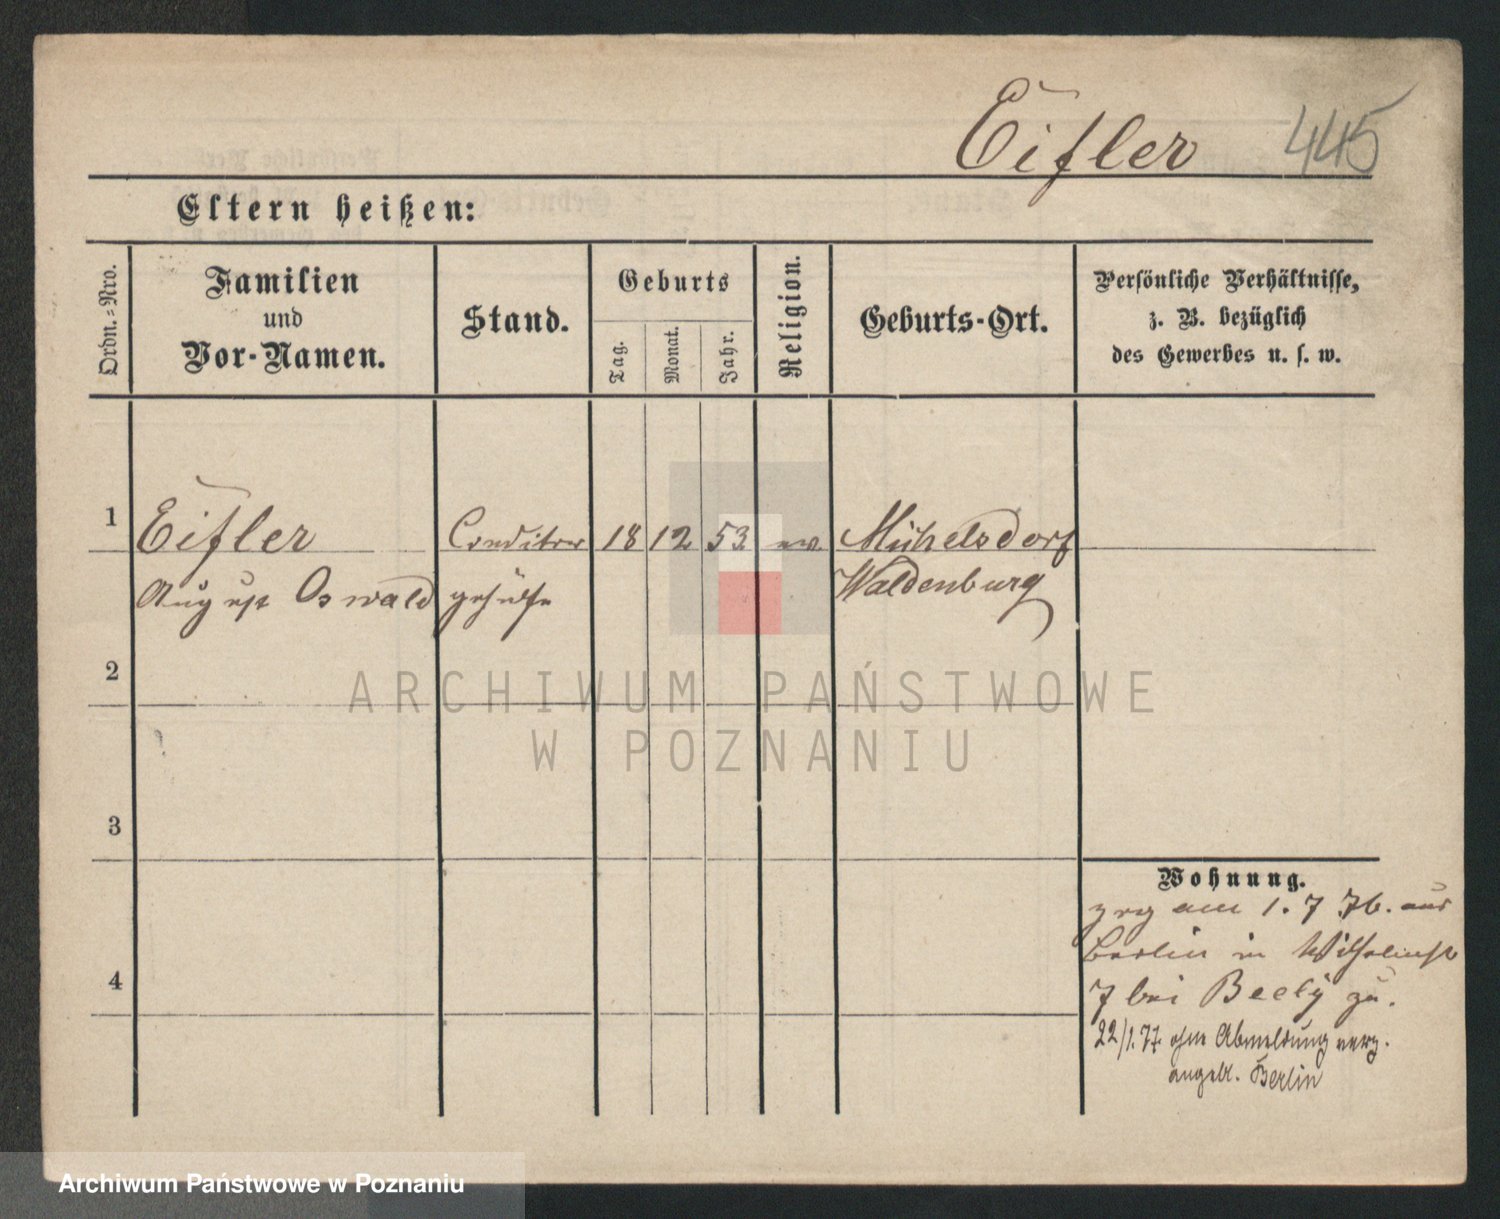 Eifler 445
Eltern heißen:
Ordn.-Nro.
Familien
und
Vor-Namen.
Stand.
Geburts
Tag.
Monat.
Jahr.
Religion.
Geburts-Ort.
Persönliche Verhältnisse,
z. B. bezüglich
des Gewerbes u. s. w.
1 Eifler Conditor 18 12 53 ev. Michelsdorf
August Oswald gehülfe Waldenburg
2
ARCHIWUM PAŃSTWOWE
W POZNANIU
3
Wohnung.
am 1. 7 76. aus
Berlin in Wilhelmst
4
7 bei Beely zu.
22/1.77 ohne Abmeldung verz.
angebl. Berlin
Archiwum Państwowe w Poznaniu